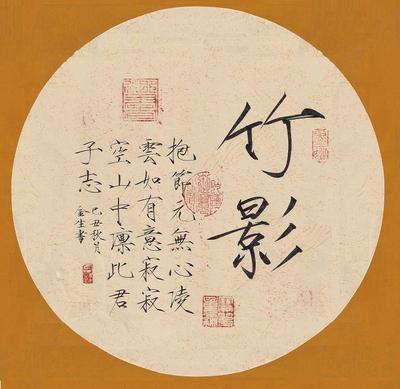 竹影
抱節元無心陵
雲如有意寂寂
空山中凛此君
子志
己丑秋月
生書